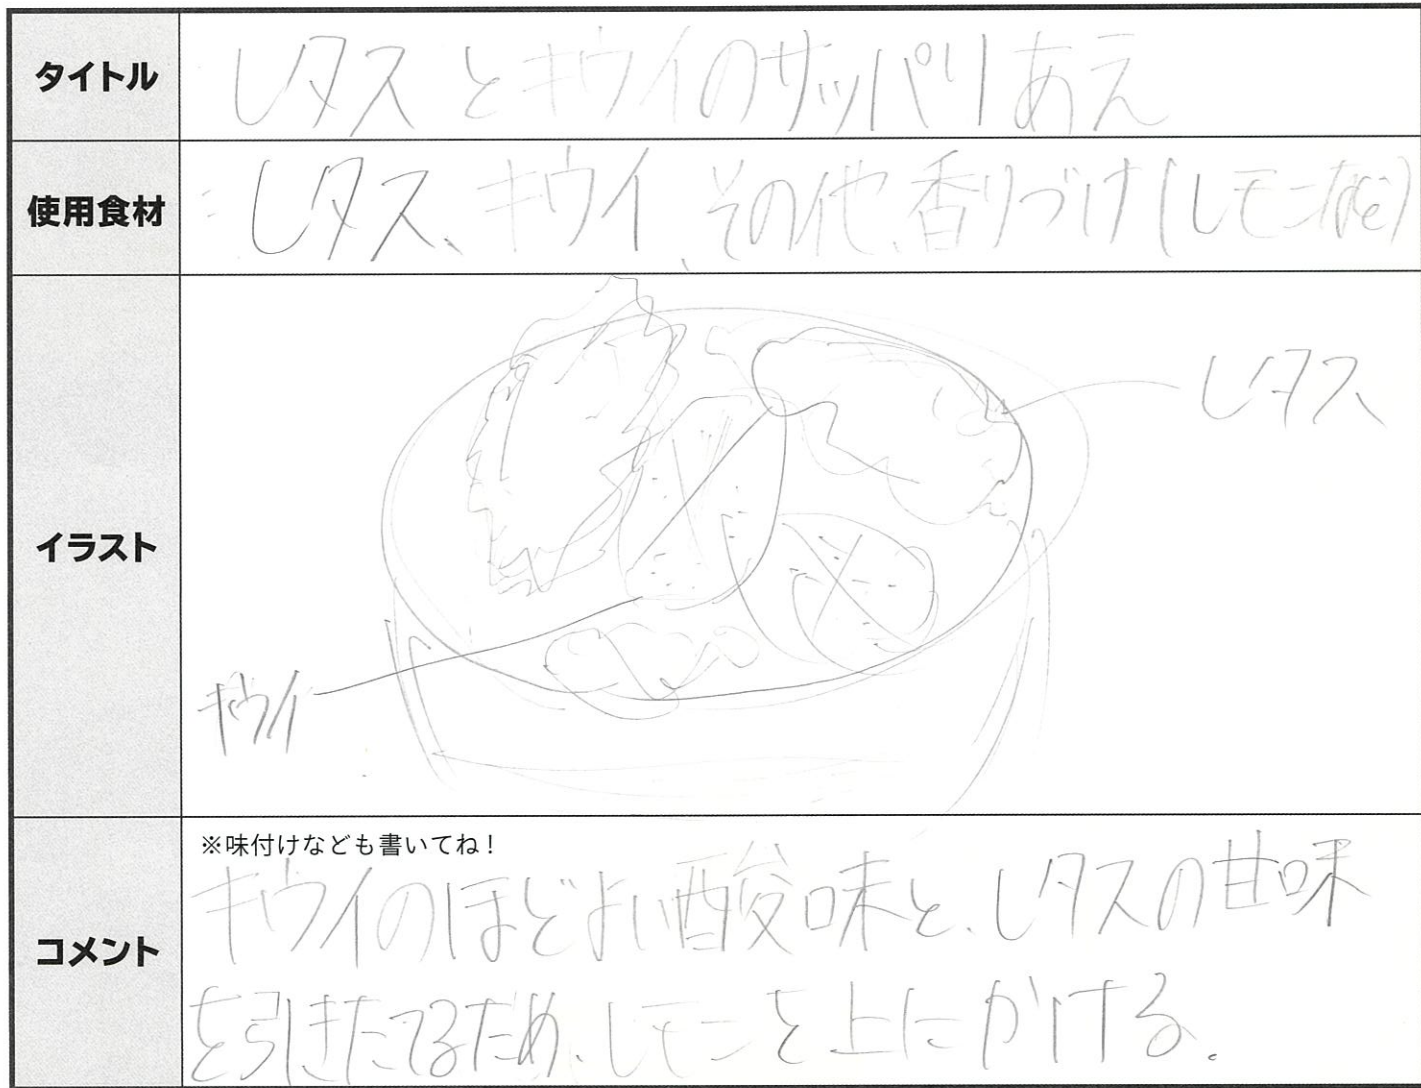 タイトル
レタスとキウイのサッパリあえ
使用食材
レタス、キウイ、その他、香りづけ(レモンなど)
イラスト
レタス
キウイ
コメント
※味付けなども書いてね!
キウイのほどよい酸味と、レタスの甘味
を引きたてるため、レモンを上にかける。